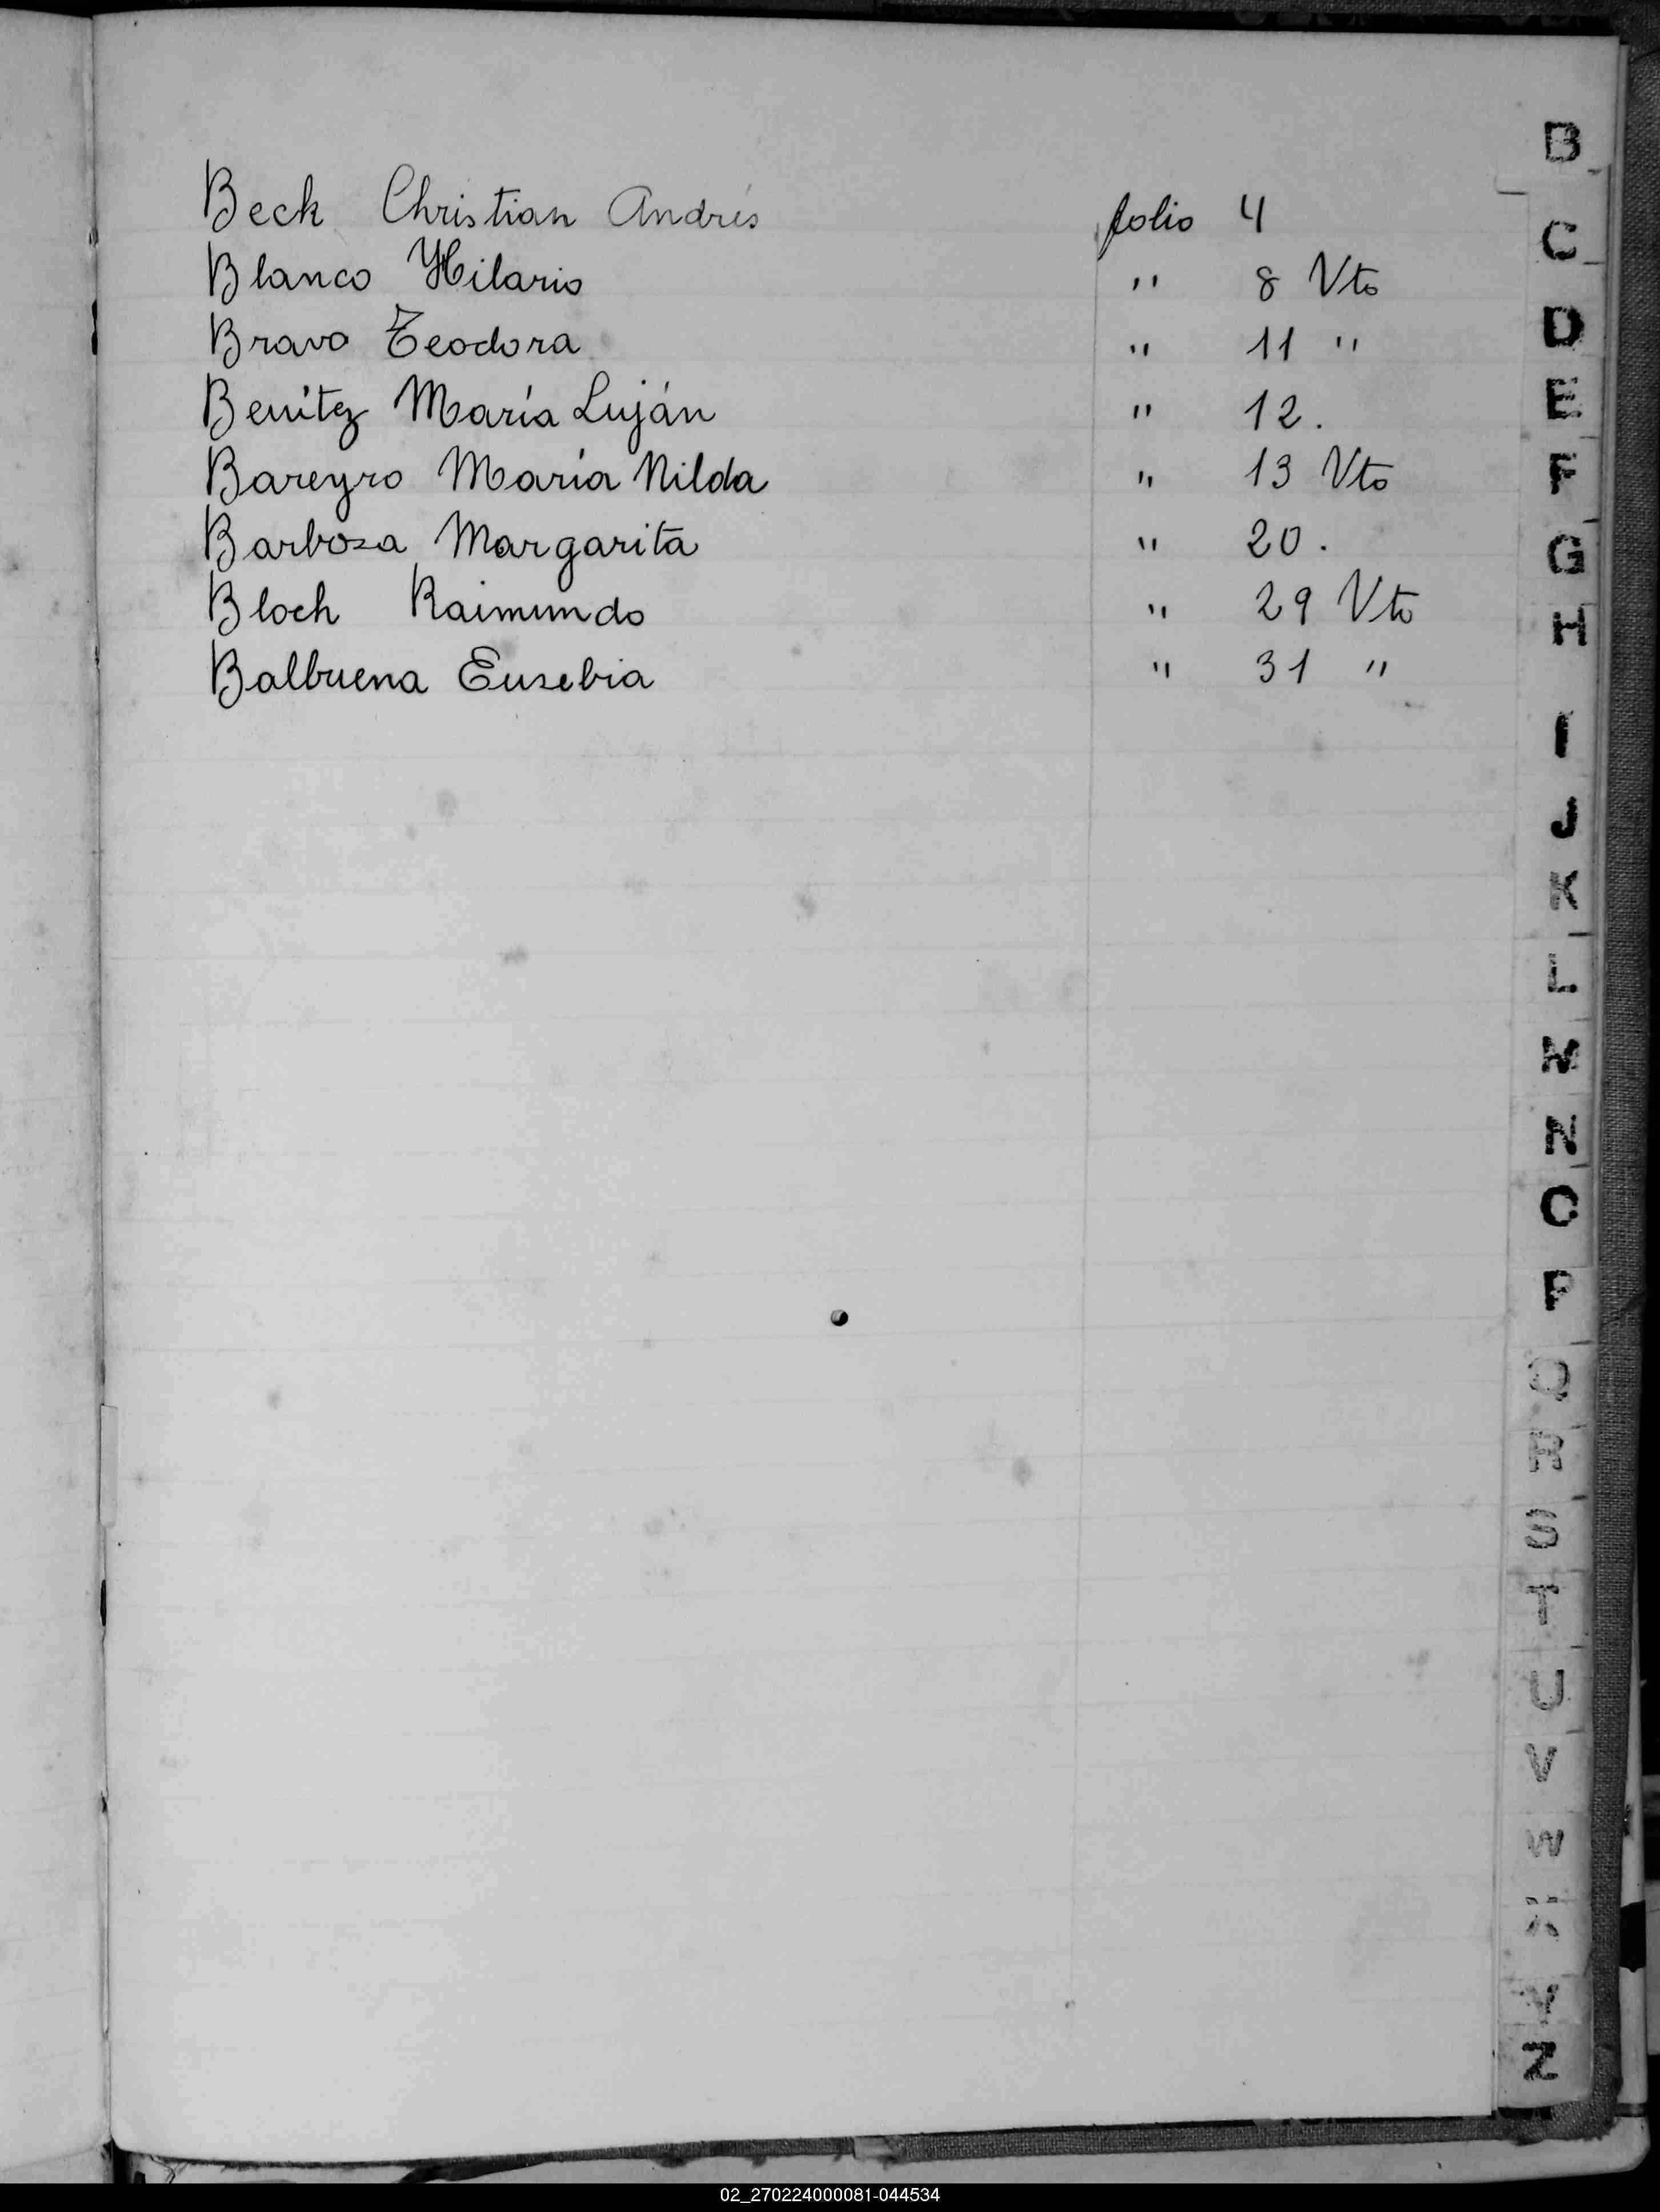 Beck Christian Andrés folio 4
Blanco Hilario " 8 Vto
Bravo Teodora " 11 "
Benítez María Luján " 12.
Bareyro María Nilda " 13 Vto
Barboza Margarita " 20.
Bloch Raimundo " 29 Vto
Balbuena Eusebia " 31 "
B
C
D
E
F
G
H
I
J
K
L
M
N
O
P
Q
R
S
T
U
V
W
X
Y
Z
02_270224000081-044534